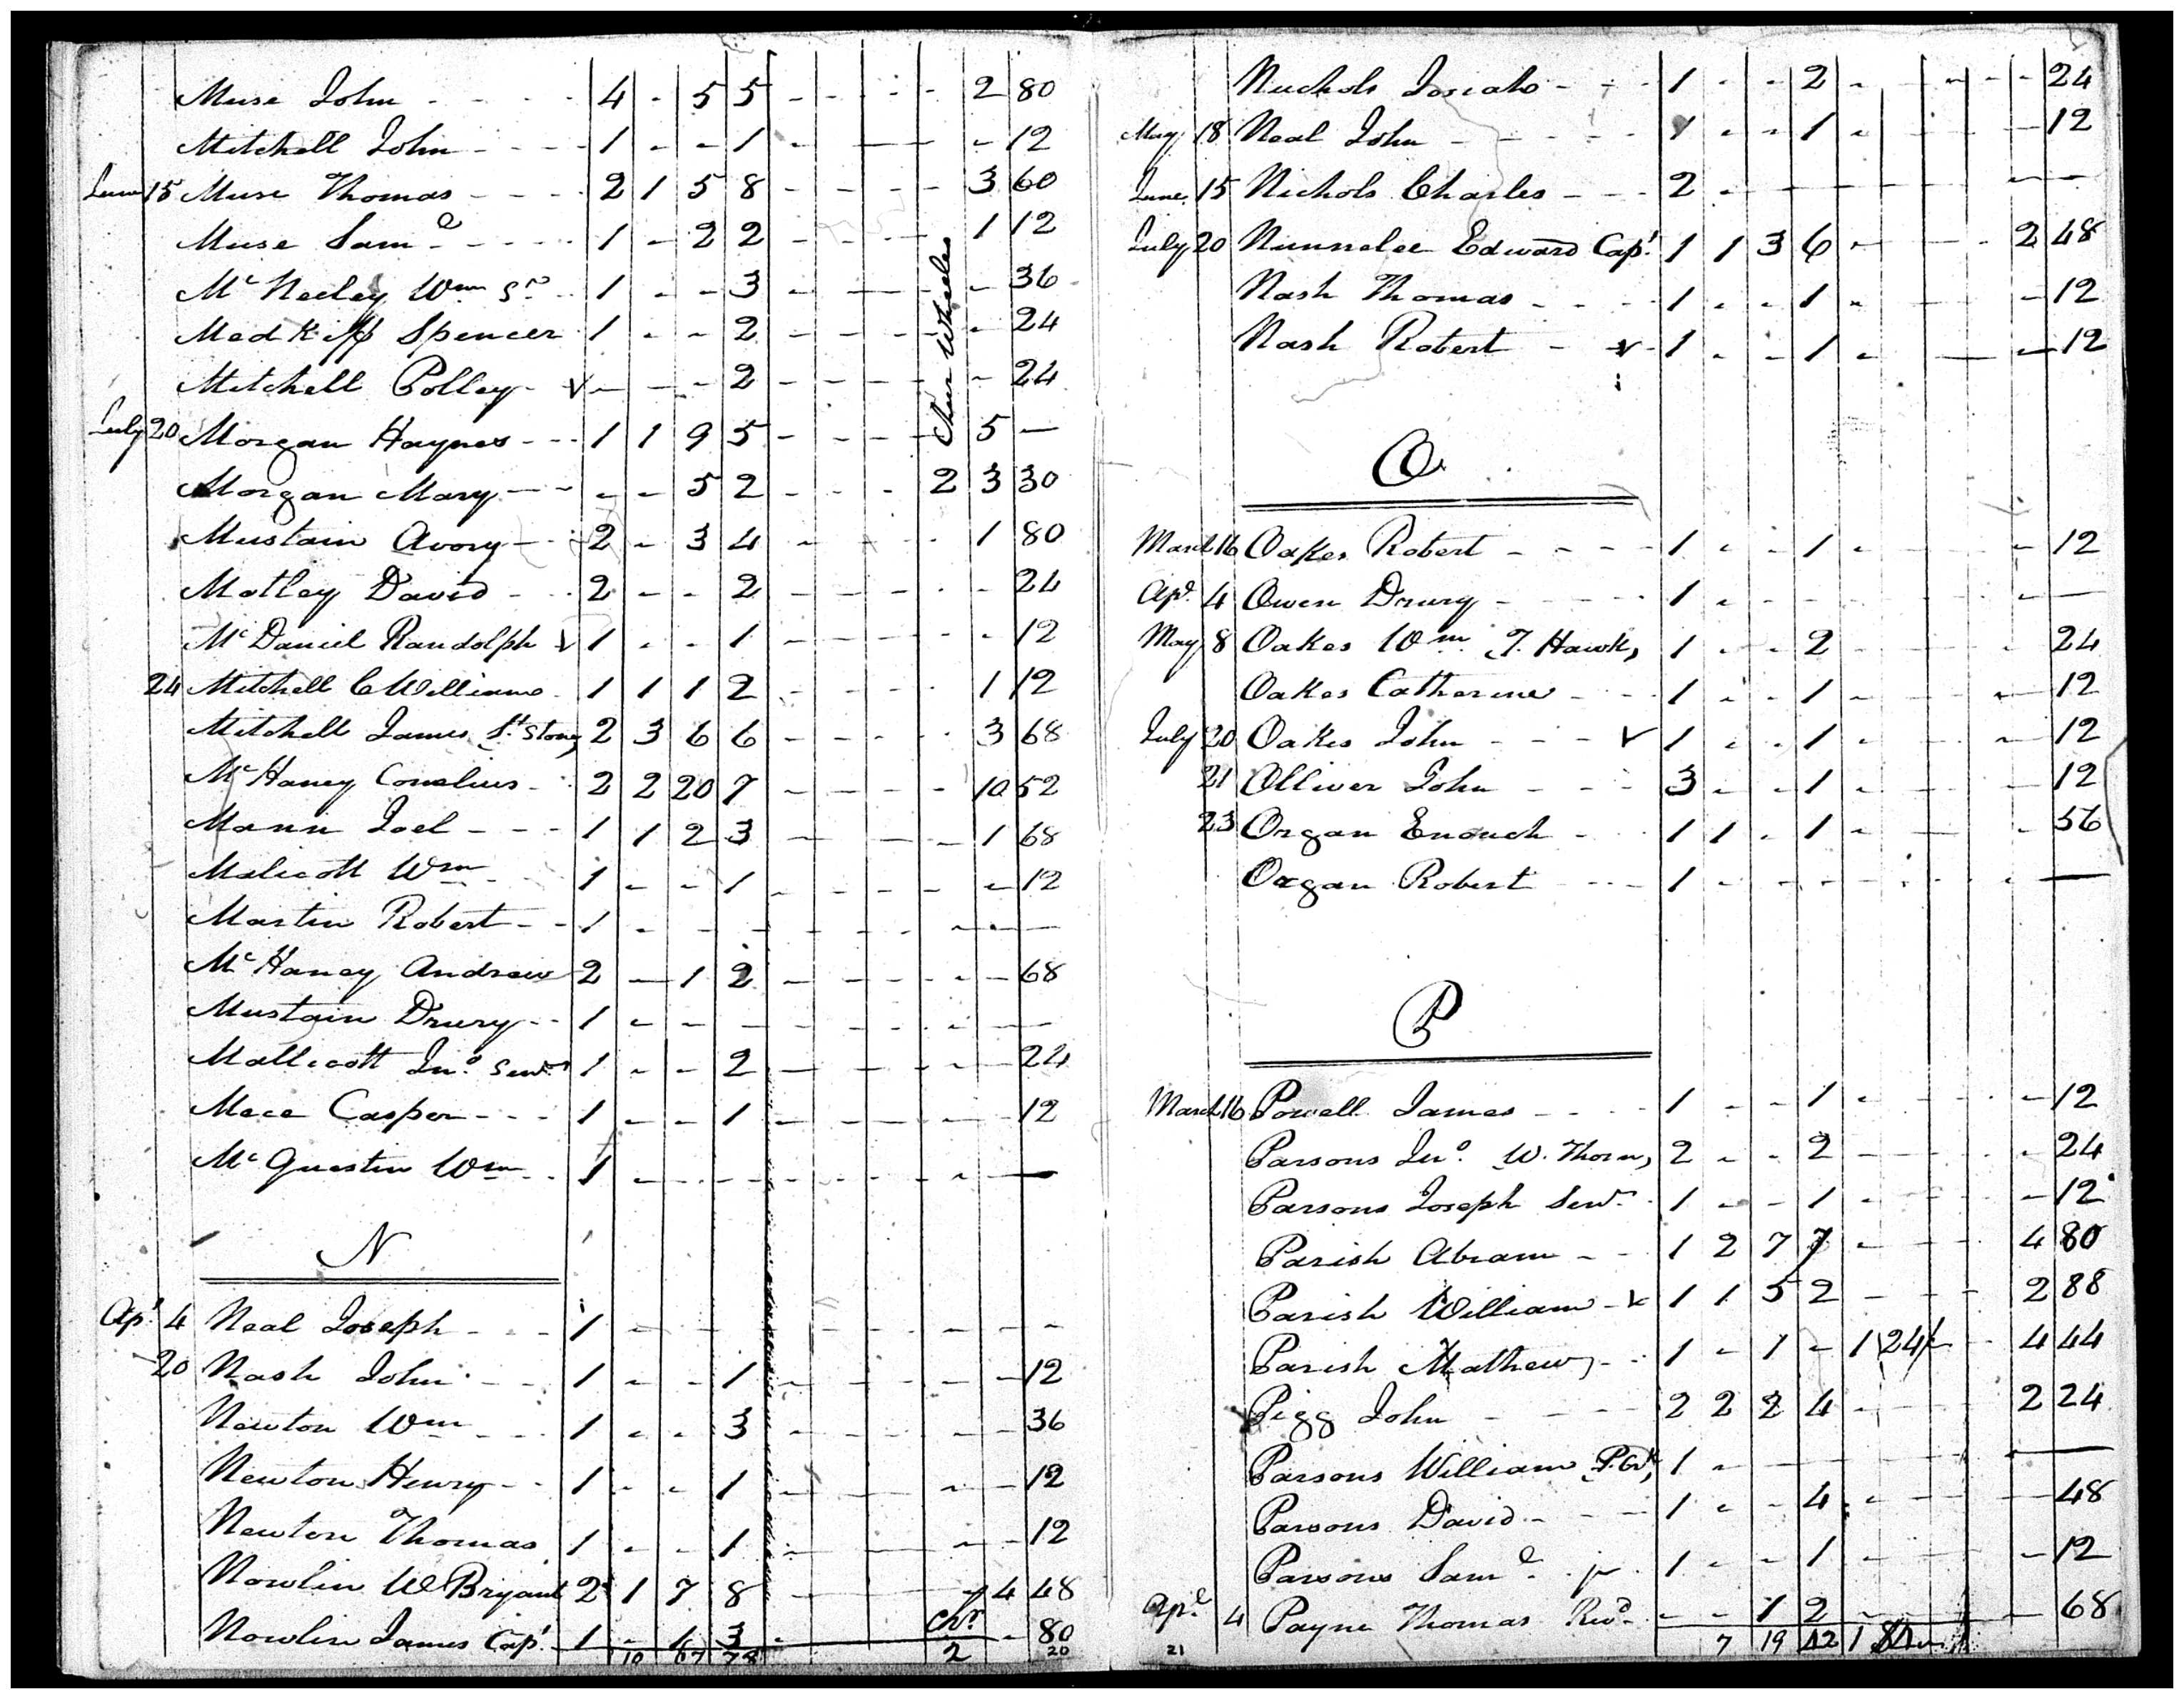 Muse John - - - - 4 - 5 5 - - - - 2 80
Mitchell John - - - 1 - - 1 - - - - - 12
June 15 Muse Thomas - - - 2 1 5 8 - - - - 3 60
Muse Saml - - - - 1 - 2 2 - - - 1 12
Mc Neeley Wm Sr - 1 - - 3 - - - - 36
Madkiff Spencer 1 - - 2 - - - - 24
Mitchell Polley - v - - - 2 - - - - 24
July 20 Morgan Haynes - - 1 1 9 5 - - - - 5 -
Chair Wheeles
Morgan Mary - - - - 5 2 - - - 2 3 30
Mustain Avory - - 2 - 3 4 - - - 1 80
Motley David - - 2 - - 2 - - - - - 24
Mc Daniel Randolph v 1 - - 1 - - - - - 12
24 Mitchell C Williams - 1 1 1 2 - - - - 1 12
Mitchell James St Stone, 2 3 6 6 - - - - 3 68
Mc Haney Cornelius - 2 2 20 7 - - - - 10 52
Mann Joel - - - 1 1 2 3 - - - 1 68
Malicott Wm 1 - - 1 - - - - - 12
Martin Robert - - 1 - - - - - - - -
Mc Haney Andrew 2 - 1 2 - - - - - 68
Mustain Drury - - 1 - - - - - - - -
Mallicott Jno Senr 1 - - 2 - - - - - 24
Mece Casper - - - 1 - - 1 - - - - - 12
Mc Questin Wm - 1 - - - - - - - -
N
Apl 4 Neal Joseph - - - 1 - - - - - - - -
20 Nash John - - 1 - - 1 - - - - - 12
Newton Wm - - 1 - - 3 - - - - - 36
Newton Henry - - 1 - - 1 - - - - - 12
Newton Thomas 1 - - 1 - - - - - 12
Nowlin W Bryant 2 1 7 8 - - - 4 48
Nowlin James Capt - 1 - 1 3 - Chr - 80
10 67 78 2 20
Nuchols Josiah - - - 1 - - 2 - - - - - 24
May 18 Neal John - - - - 1 - - 1 - - - - 12
June 15 Nichols Charles - - - 2 - - - - - - - -
July 20 Nunnelee Edward Capt 1 1 3 6 - - - 2 48
Nash Thomas - - - - 1 - - 1 - - - - 12
Nash Robert - v - 1 - - 1 - - - - 12
O
March 16 Oakes Robert - - - - 1 - - 1 - - - 12
Apl 4 Owen Drury - - - - 1 - - - - - - -
May 8 Oakes Wm T. Hawk, 1 - - 2 - - - 24
Oakes Catherine - - - 1 - - 1 - - - 12
July 20 Oakes John - - - v 1 - - 1 - - - 12
21 Olliver John - - - 3 - - 1 - - - 12
23 Organ Enouch - - 1 1 - 1 - - - 56
Organ Robert - - - 1 - - - - - - -
P
March 16 Powell James - - - - 1 - - 1 - - - - 12
Parsons Jno W. Thorn, 2 - - 2 - - - - 24
Parsons Joseph Senr - 1 - - 1 - - - - 12
Parish Abram - - 1 2 7 7 - - - 4 80
Parish William - v 1 1 5 2 - - - 2 88
Parish Mathew, - - 1 - 1 - 1 24/- - 4 44
Pigg John - - - - 2 2 2 4 - - - 2 24
Parsons William 1 - - - - - - -
Parsons David - - - 1 - - 4 - - - - 48
Parsons Saml jr - 1 - - 1 - - - - 12
Apl 4 Payne Thomas Revd - - - 1 2 - - - 68
21 7 19 42 1